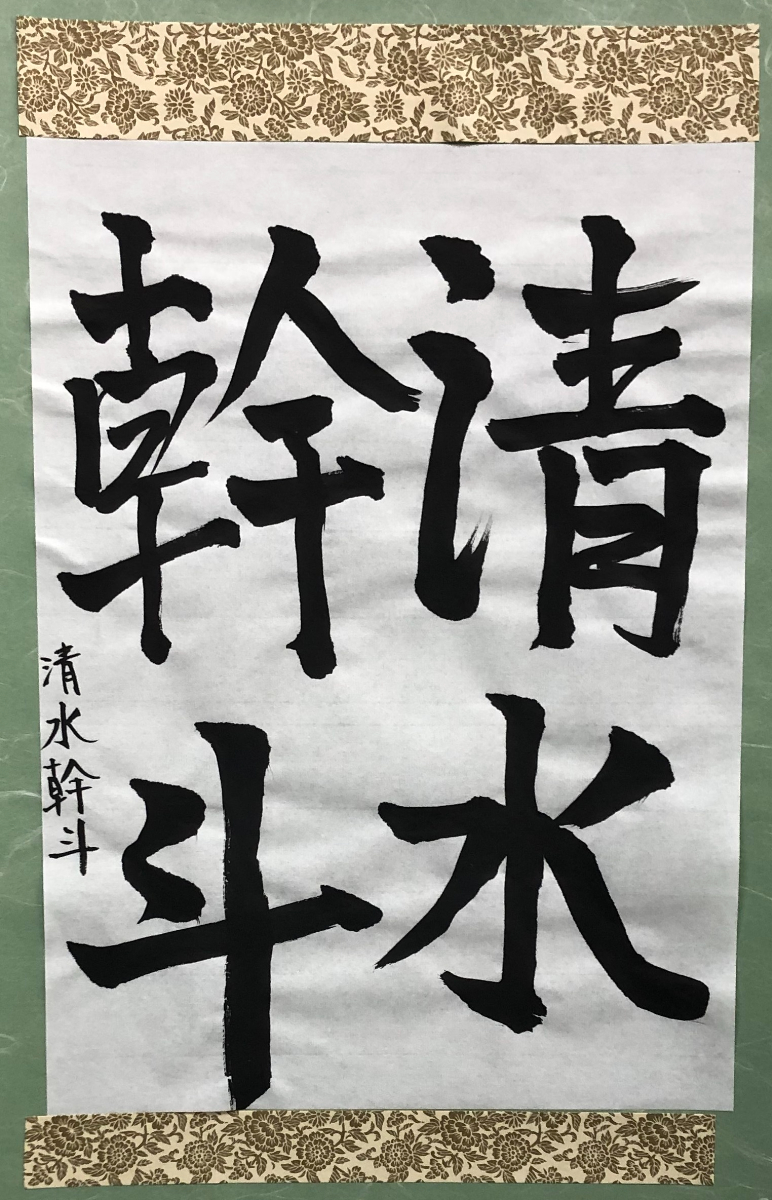 清水
幹斗
清水幹斗